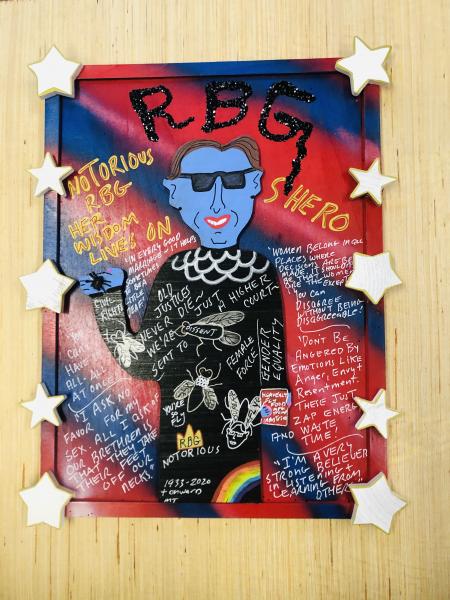 RBG
NOTORIOUS
RBG
HER
WISDOM
LIVES ON
SHERO
"IN EVERY GOOD
MARRIAGE IT HELPS
SOMETIMES
TO BE A
LITTLE
DEAF"
CAN'T
HAVE IT
ALL ALL
AT ONCE"
"I ASK NO
FAVOR FOR MY
SEX ALL I ASK OF
OUR BRETHREN IS
THAT THEY TAKE
THEIR FEET
OFF OUR
NECKS"
OLD
JUSTICES
NEVER DIE JUST
WE'RE
SENT TO
A HIGHER
COURT
DISSENT
FEMALE
FORCE
GENDER
EQUALITY
YOU'RE
FLY
RBG
NOTORIOUS
1933-2020
+ onward
"WOMEN BELONG IN ALL
PLACES WHERE
DECISIONS ARE BEING
MADE. IT SHOULDN'T
BE THAT WOMEN
ARE THE EXCEPTION"
"YOU CAN
DISAGREE
WITHOUT BEING
DISAGREEABLE"
"DON'T BE
ANGERED BY
EMOTIONS LIKE
ANGER, ENVY +
RESENTMENT.
THESE JUST
ZAP ENERGY
WASTE
TIME."
AND
"I'M A VERY
STRONG BELIEVER
IN LISTENING +
LEARNING FROM
OTHERS"